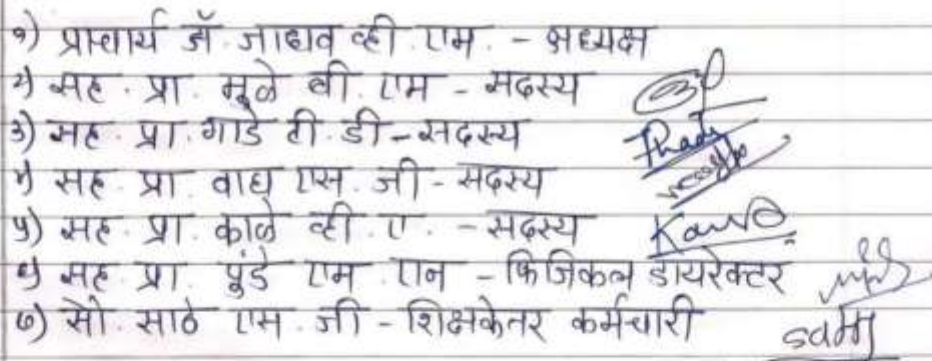 १) प्राचार्य डॉ. जाधव व्ही. एम. - अध्यक्ष
२) सह. प्रा. मुळे बी. एम - सदस्य
३) सह. प्रा. गाडे टी. डी - सदस्य
४) सह. प्रा. वाघ एस. जी - सदस्य
५) सह. प्रा. काळे व्ही. ए. - सदस्य
६) सह. प्रा. पुंडे एम. एन - फिजिकल डायरेक्टर
७) सौ. साठे एम. जी - शिक्षकेतर कर्मचारी